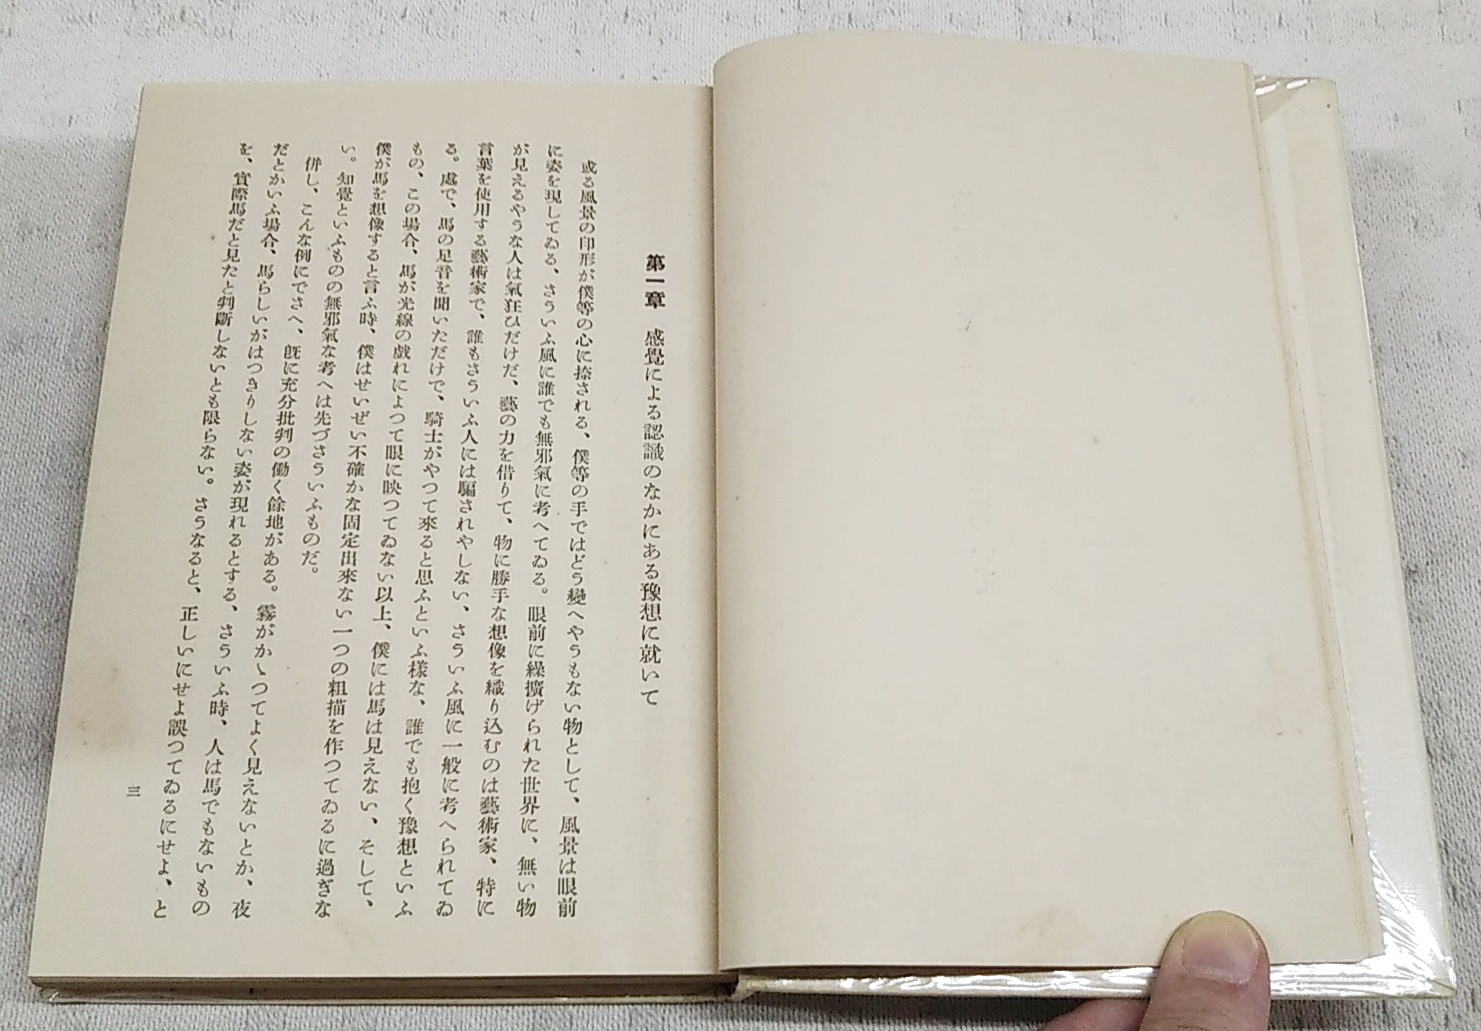 第一章　感覺による認識のなかにある豫想に就いて
或る風景の印形が僕等の心に捺される、僕等の手ではどう變へやうもない物として、風景は眼前
に姿を現してゐる、さういふ風に誰でも無邪氣に考へてゐる。眼前に繰擴げられた世界に、無い物
が見えるやうな人は氣狂ひだけだ、藝の力を借りて、物に勝手な想像を織り込むのは藝術家、特に
言葉を使用する藝術家で、誰もさういふ人には騙されやしない、さういふ風に一般に考へられてゐ
る。處で、馬の足音を聞いただけで、騎士がやつて來ると思ふといふ樣な、誰でも抱く豫想といふ
もの、この場合、馬が光線の戯れによつて眼に映つてゐない以上、僕には馬は見えない、そして、
僕が馬を想像すると言ふ時、僕はせいぜい不確かな固定出來ない一つの粗描を作つてゐるに過ぎな
い。知覺といふものの無邪氣な考へは先づさういふものだ。
併し、こんな例にでさへ、既に充分批判の働く餘地がある。霧がかゝつてよく見えないとか、夜
だとかいふ場合、馬らしいがはつきりしない姿が現れるとする、さういふ時、人は馬でもないもの
を、實際馬だと見たと判斷しないとも限らない。さうなると、正しいにせよ誤つてゐるにせよ、と
三